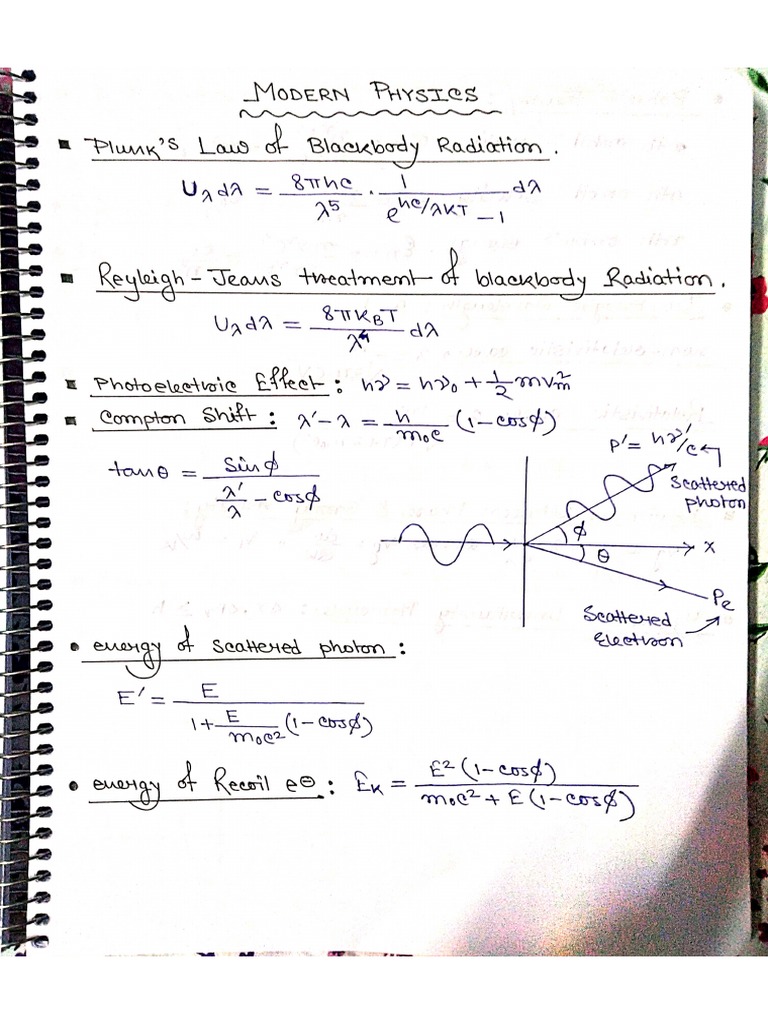 MODERN PHYSICS
▪ Plunk's Law of Blackbody Radiation.
U_λ dλ = 8πhc/λ^5 · 1/(e^(hc/λKT) - 1) dλ
▪ Reyleigh-Jeans treatment of blackbody Radiation.
U_λ dλ = 8πK_BT/λ^4 dλ
▪ Photoelectric Effect: hν = hν₀ + 1/2 mv_m^2
▪ Compton Shift: λ' - λ = h/m₀c (1 - cosϕ)
P' = hν'/c
tanθ = sinϕ/(λ'/λ - cosϕ)
Scattered
photon
ϕ
θ
x
Pe
Scattered
Electron
• energy of scattered photon:
E' = E/(1 + E/m₀c² (1 - cosϕ))
• energy of Recoil e⊖: E_K = E²(1 - cosϕ)/(m₀c² + E(1 - cosϕ))